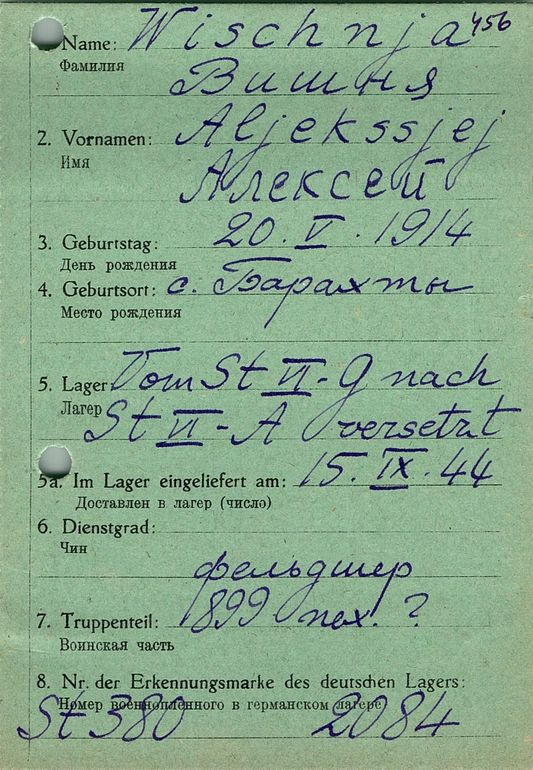 1. Name: Wischnja 456
Фамилия Вишня
2. Vornamen: Aljekssjej
Имя Алексей
3. Geburtstag: 20. V. 1914
День рождения
4. Geburtsort: с. Барахты
Место рождения
5. Lager Vom St VI-G nach
Лагер St VI-A versetzt
5a. Im Lager eingeliefert am: 15. IX. 44
Доставлен в лагер (число)
6. Dienstgrad:
Чин
фельдшер
7. Truppenteil: 899 пех. ?
Воинская часть
8. Nr. der Erkennungsmarke des deutschen Lagers:
Номер военнопленного в германском лагере
St 380 2084